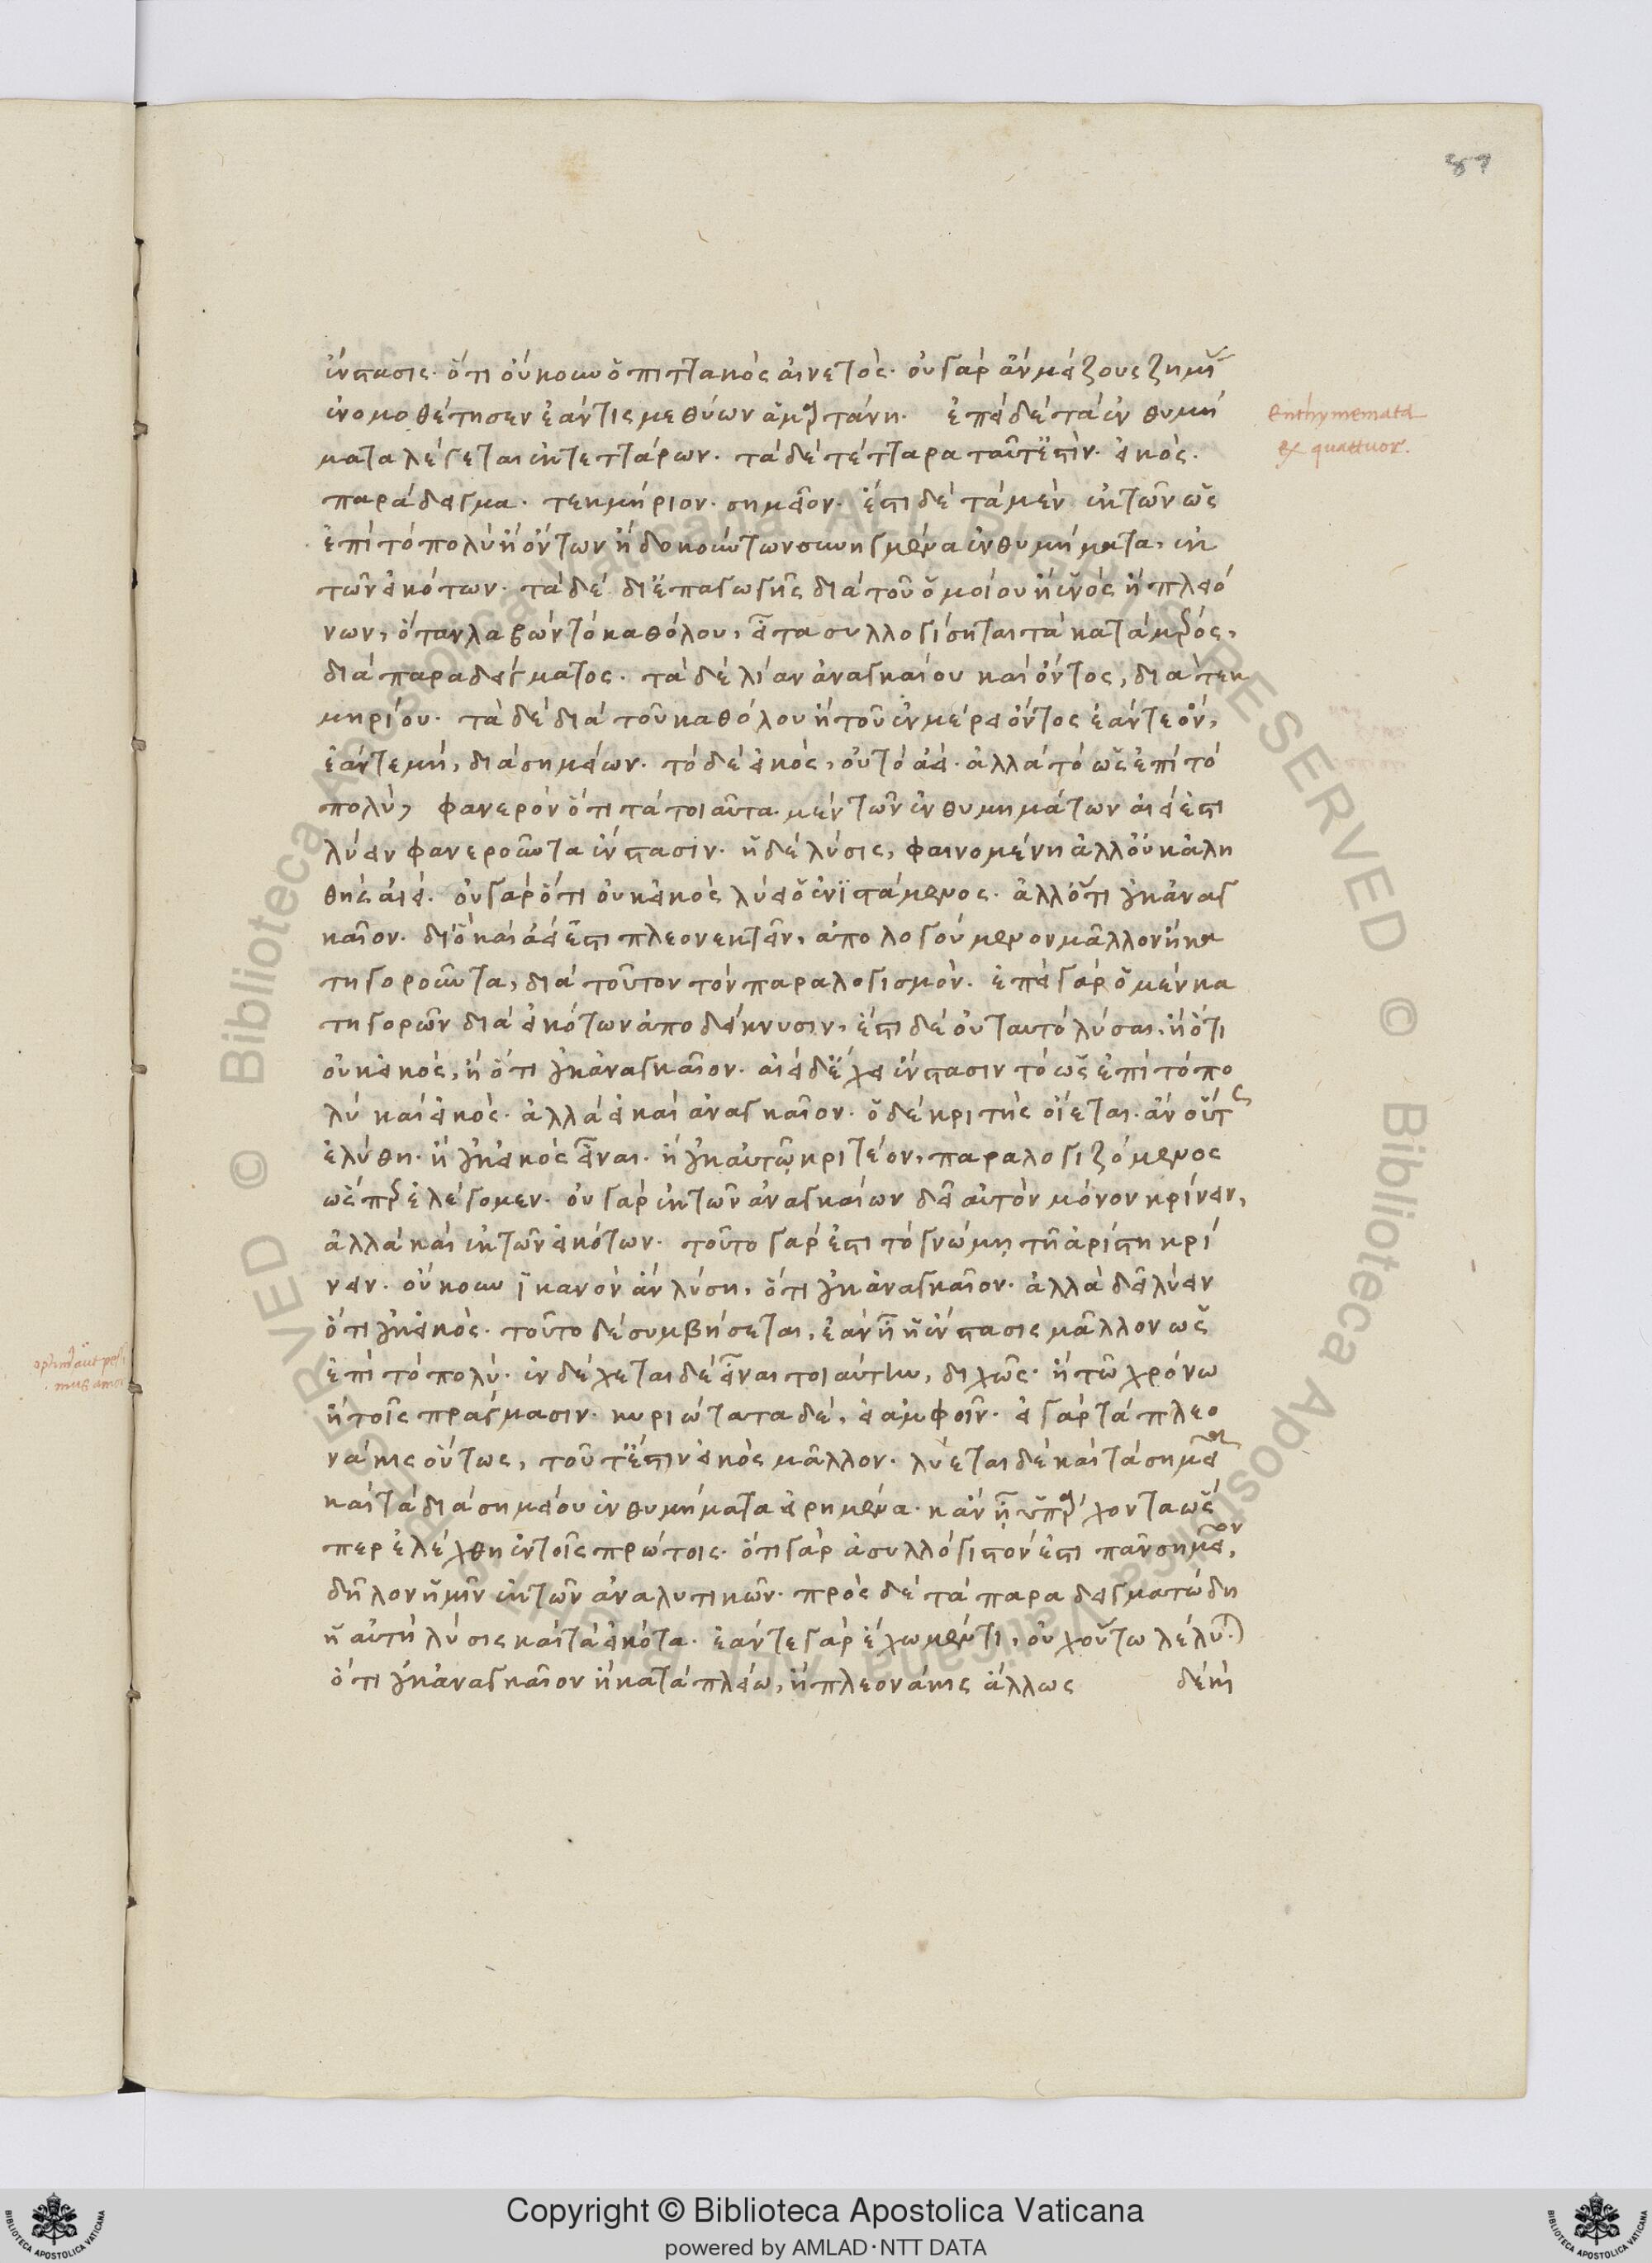 87
ἔνστασις· ὅτι οὔκουν ὁ πιττακὸς αἰνετός· οὐ γὰρ ἂν μείζους ζημί
ἐνομοθέτησεν ἐάν τις μεθύων ἁμρτάνη. ἐπεὶ δὲ τὰ ἐνθυμή
ματα λέγεται ἐκ τεττάρων· τὰ δὲ τέτταρα ταῦτ' ἐστίν· εἰκός·
παράδειγμα· τεκμήριον· σημεῖον· ἔστι δὲ τὰ μὲν ἐκ τῶν ὡς
ἐπὶ τὸ πολὺ ἢ ὄντων ἢ δοκούντων συνηγμένα ἐνθυμήματα, ἐκ
τῶν εἰκότων· τὰ δὲ δι' ἐπαγωγῆς διὰ τοῦ ὁμοίου ἢ ἑνὸς ἢ πλειό
νων, ὅταν λαβὼν τὸ καθόλου, εἶτα συλλογίσηται τὰ κατὰ μρός,
διὰ παραδείγματος· τὰ δὲ λίαν ἀναγκαίου καὶ ὄντος, διὰ τεκ
μηρίου· τὰ δὲ διὰ τοῦ καθόλου ἢ τοῦ ἐν μέρει ὄντος ἐάν τε ὄν,
ἐάν τε μή, διὰ σημείων· τὸ δὲ εἰκός, οὐ τὸ ἀεί· ἀλλὰ τὸ ὡς ἐπὶ τὸ
πολύ, φανερὸν ὅτι τὰ τοιαῦτα μὲν τῶν ἐνθυμημάτων ἀιεί ἐστι
λύειν φανεροῦντα ἔνστασιν· ἡ δὲ λύσις, φαινομένη ἀλλ' οὐκ ἀλη
θὴς ἀιεί· οὐ γὰρ ὅτι οὐκ εἰκὸς λύει ὁ ἐνιστάμενος· ἀλλ' ὅτι οὐκ ἀναγ
καῖον· διὸ καὶ ἀεί ἐστι πλεονεκτεῖν, ἀπολογούμενον μᾶλλον ἢ κα
τηγοροῦντα, διὰ τοῦτον τὸν παραλογισμόν· ἐπεὶ γὰρ ὁ μὲν κα
τηγορῶν διὰ εἰκότων ἀποδείκνυσιν, ἔστι δὲ οὐ ταυτὸ λύσαι, ἢ ὅτι
οὐκ εἰκός, ἢ ὅτι οὐκ ἀναγκαῖον· ἀιεὶ δ' ἔχει ἔνστασιν τὸ ὡς ἐπὶ τὸ πο
λὺ καὶ εἰκός· ἀλλὰ εἰ καὶ ἀναγκαῖον· ὁ δὲ κριτὴς οἴεται· ἂν οὕτς
ἐλύθη· ἢ οὐκ εἰκὸς εἶναι· ἢ οὐκ αὐτῷ κριτέον, παραλογιζόμενος
ὥσπρ ἐλέγομεν· οὐ γὰρ ἐκ τῶν ἀναγκαίων δεῖ αὐτὸν μόνον κρίνειν,
ἀλλὰ καὶ ἐκ τῶν εἰκότων· τοῦτο γάρ ἐστι τὸ γνώμῃ τῇ ἀρίστη κρί
νειν· οὔκουν ἱκανὸν ἂν λύση, ὅτι οὐκ ἀναγκαῖον· ἀλλὰ δεῖ λύειν
ὅτι οὐκ εἰκός· τοῦτο δὲ συμβήσεται, ἐὰν ἦ ἡ ἔνστασις μᾶλλον ὡς
ἐπὶ τὸ πολύ· ἐνδέχεται δὲ εἶναι τοιαύτην, διχῶς· ἢ τῶ χρόνω
ἢ τοῖς πράγμασιν· κυριώτατα δέ, εἰ ἀμφοῖν· εἰ γὰρ τὰ πλεο
νάκις οὕτως, τοῦτ' ἐστὶν εἰκὸς μᾶλλον· λύεται δὲ καὶ τὰ σημεῖα
καὶ τὰ διὰ σημείου ἐνθυμήματα εἰρημένα· κἂν ᾖ ὑπάρχοντα ὥσ
περ ἐλέχθη ἐν τοῖς πρώτοις· ὅτι γὰρ ἀσυλλόγιστόν ἐστι πᾶν σημεῖον,
δῆλον ἡμῖν ἐκ τῶν ἀναλυτικῶν· πρὸς δὲ τὰ παραδειγματώδη
ἡ αὐτὴ λύσις καὶ τὰ εἰκότα· ἐάν τε γὰρ ἔχωμέν τι, οὐχ οὕτω λέλυ
ὅτι οὐκ ἀναγκαῖον ἢ κατὰ πλείω, ἢ πλεονάκις ἄλλως
enthymemata
ex quattuor.
Copyright © Biblioteca Apostolica Vaticana
powered by AMLAD·NTT DATA